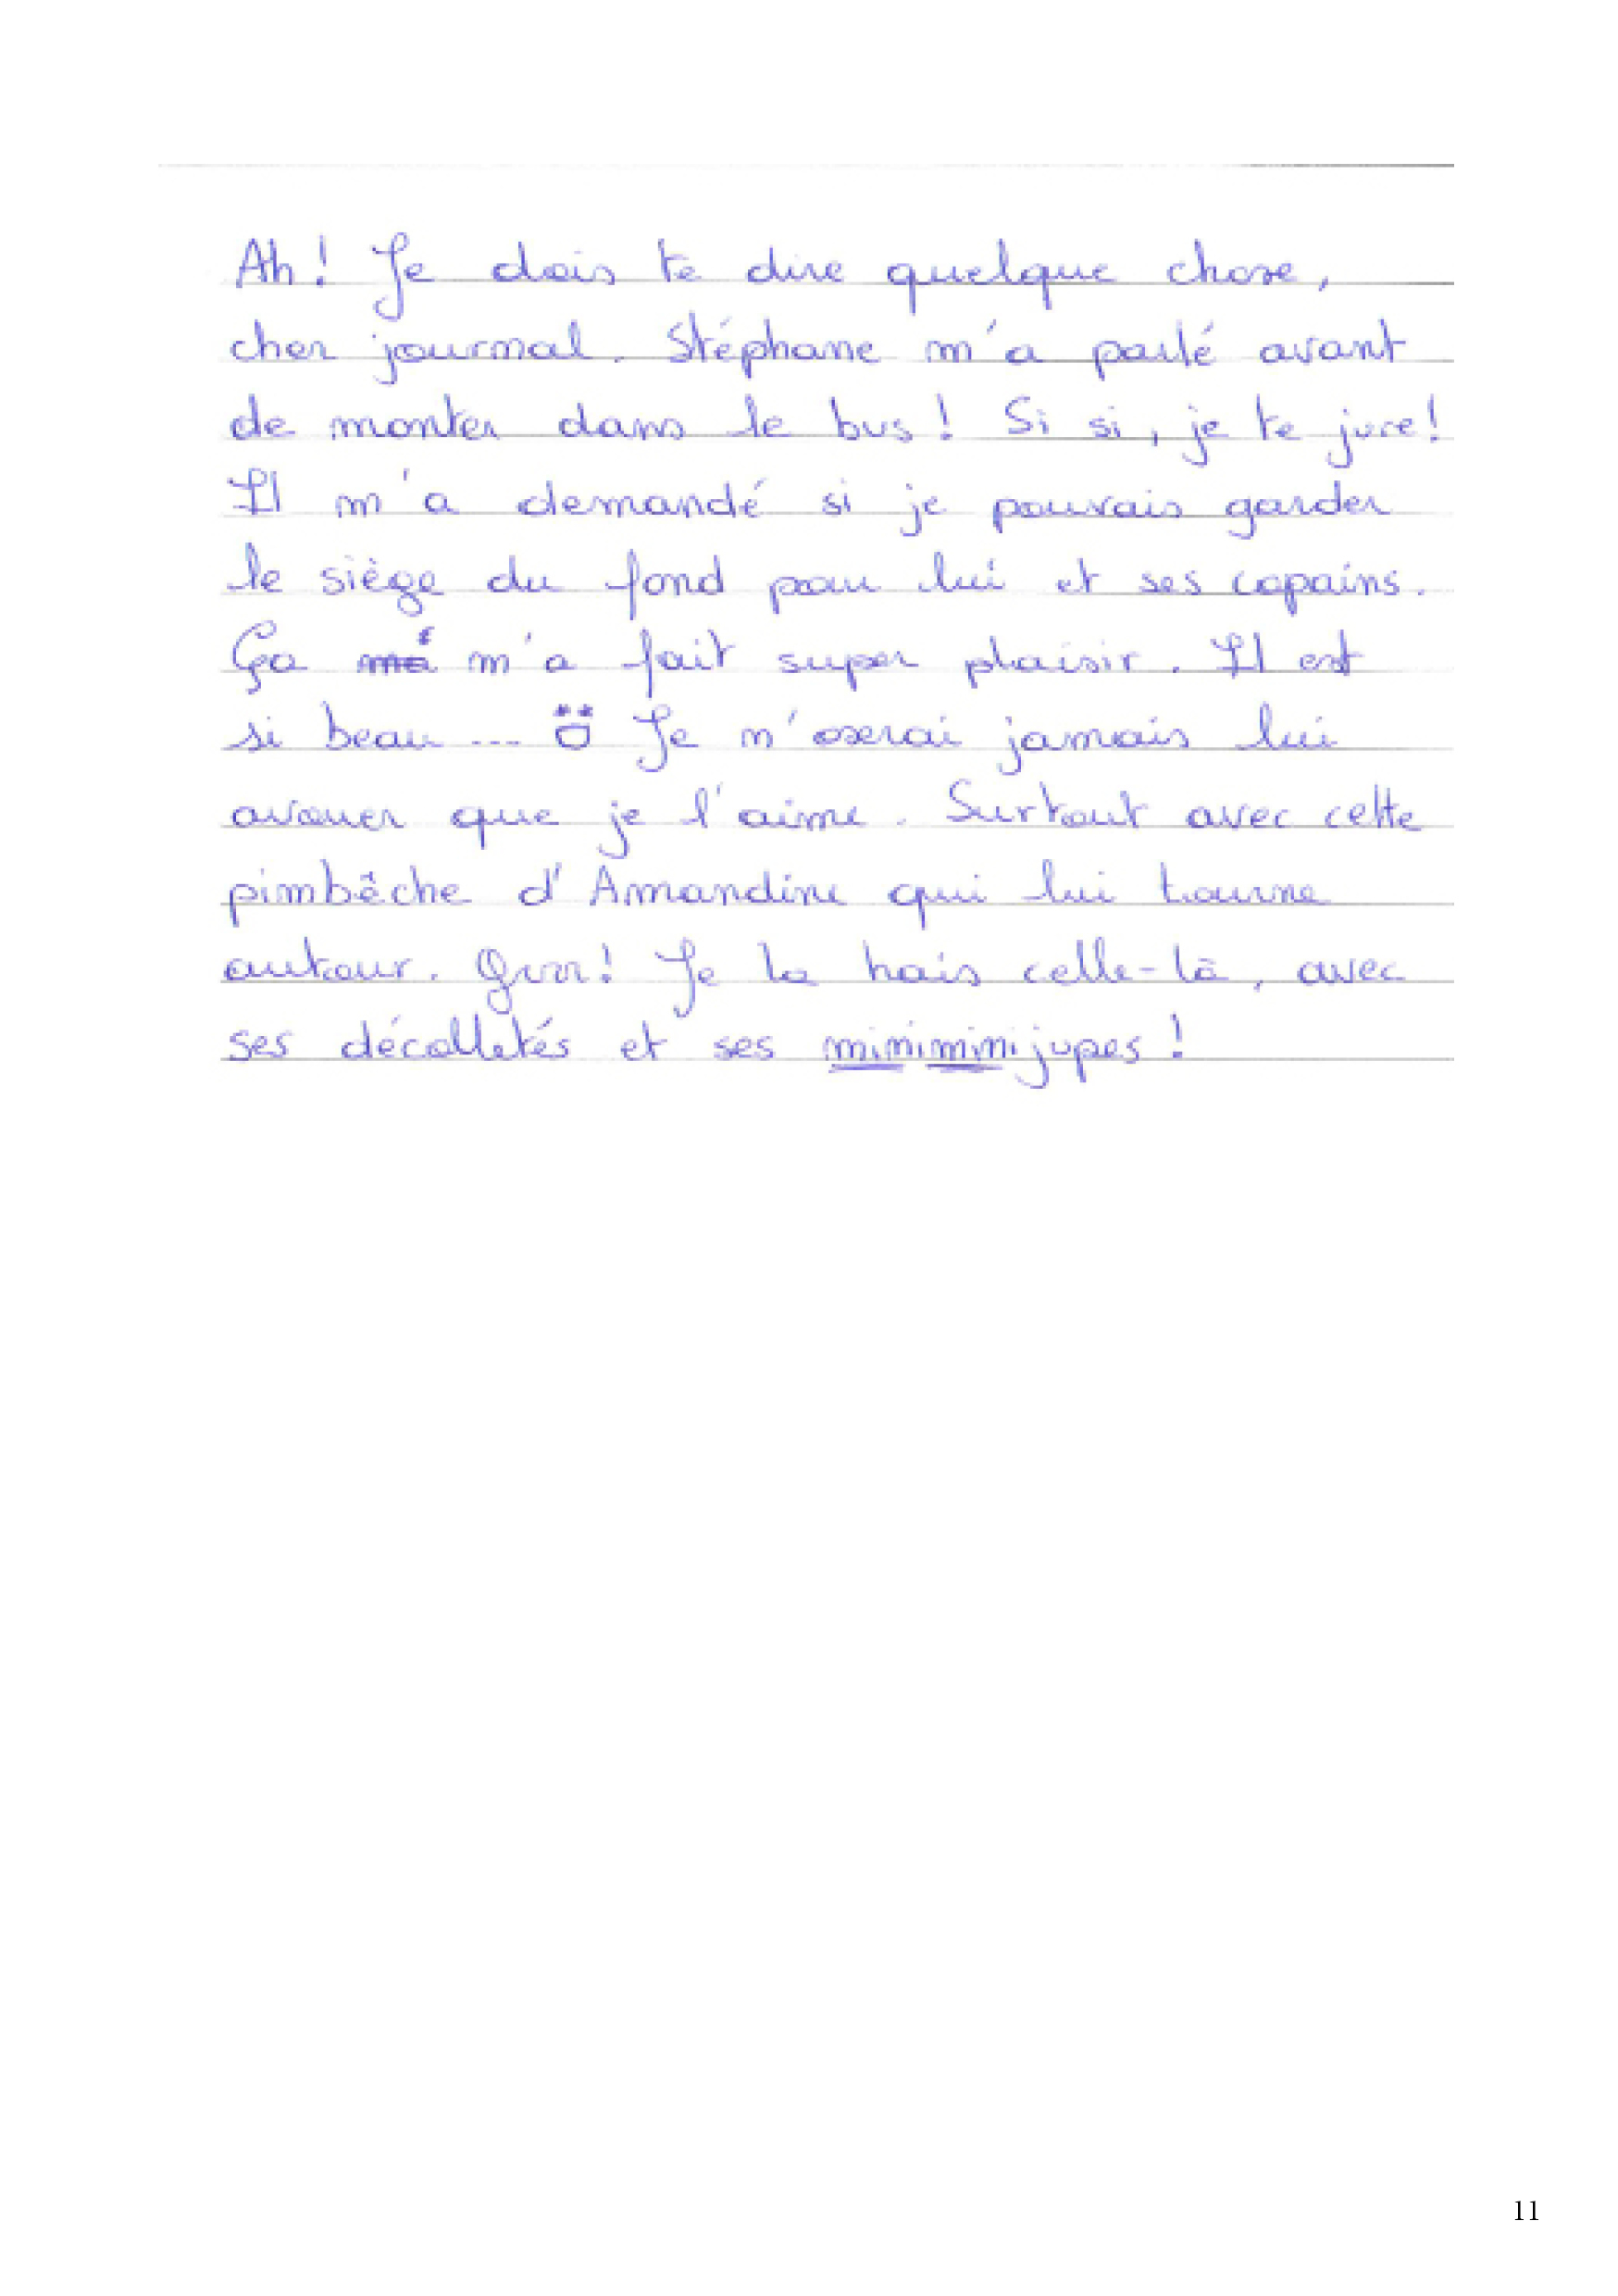 Ah! Je dois te dire quelque chose,
cher journal. Stéphane m'a parlé avant
de monter dans le bus! Si si, je te jure!
Il m'a demandé si je pouvais garder
le siège du fond pour lui et ses copains.
Ça m'a fait super plaisir. Il est
si beau... Je n'oserai jamais lui
avouer que je l'aime. Surtout avec cette
pimbêche d'Amandine qui lui tourne
autour. Grrr! Je la hais celle-là, avec
ses décolletés et ses miniminijupes!
11